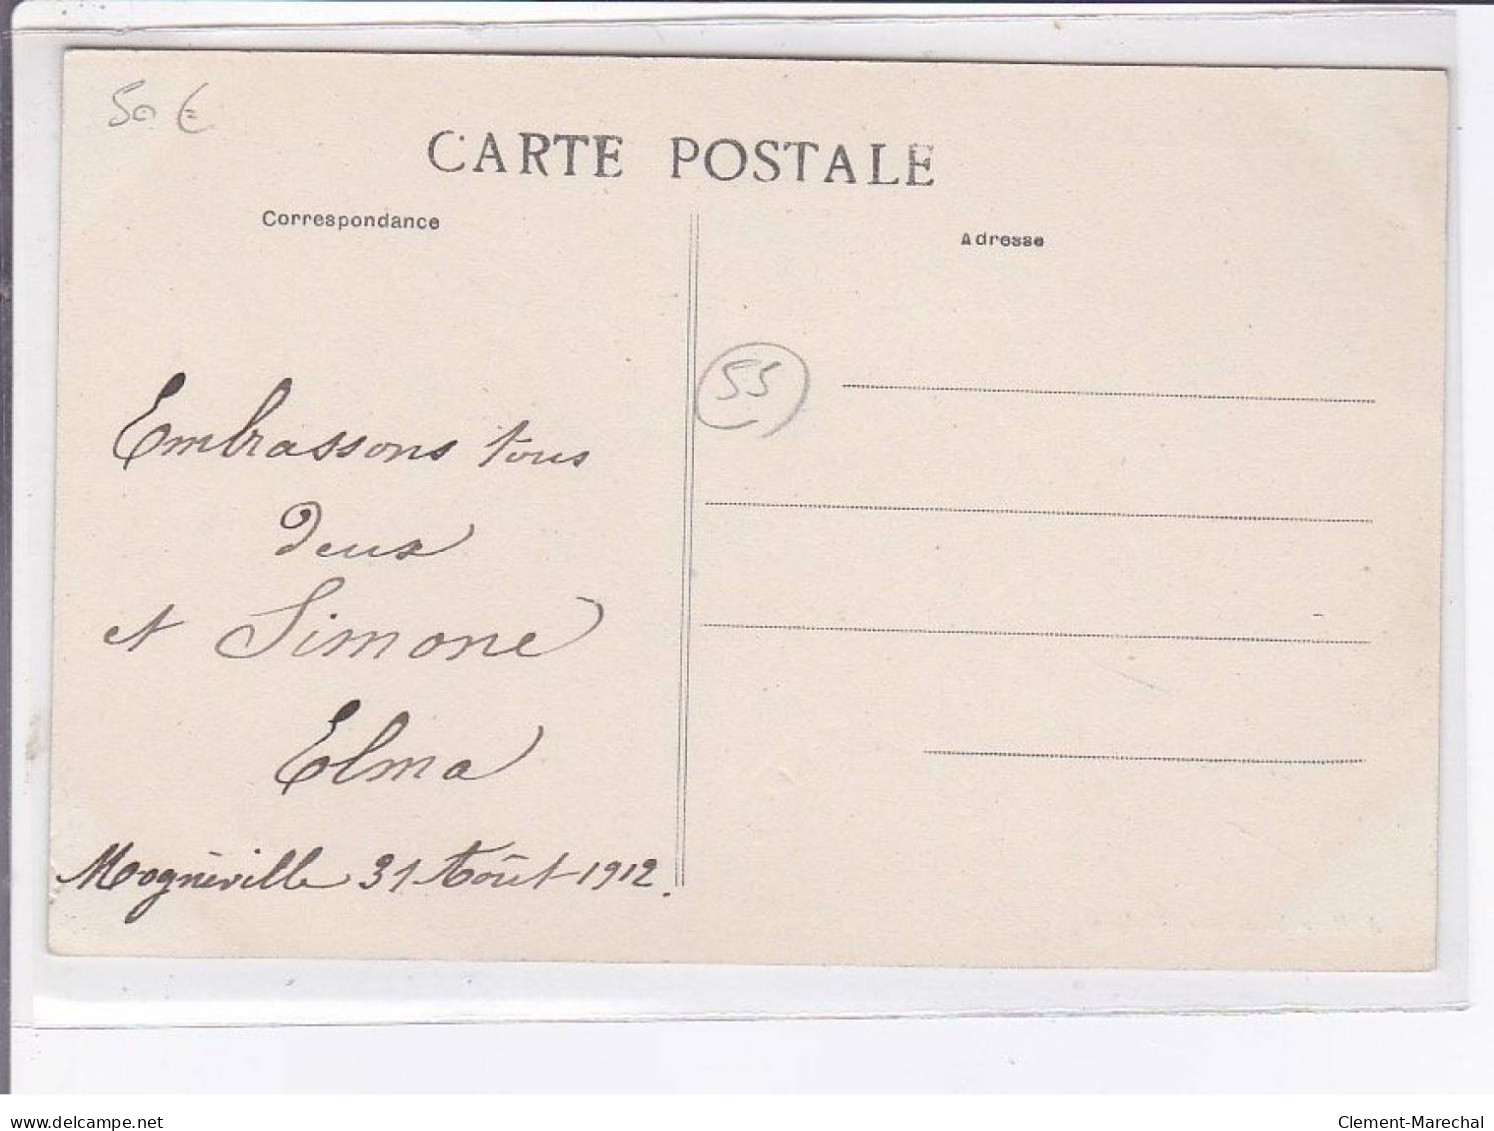 50 €
CARTE POSTALE
Correspondance
Adresse
55
Embrassons tous
deux
et Simone
Elma
Mognéville 31 Août 1912.
delcampe.net
Clement-Marechal